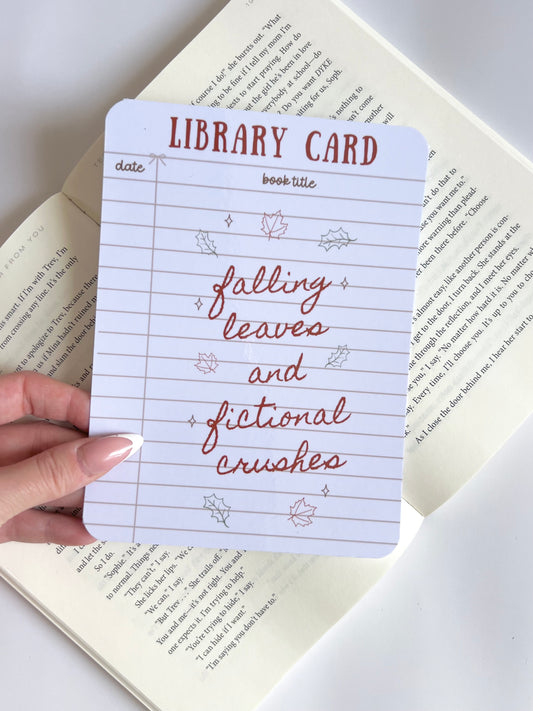 LIBRARY CARD
date
book title
falling
leaves
and
fictional
crushes
course I do!" she bursts out. "What
being to be fine if I tell my mom I'm
to start praying. How do
the girl he's been in love
everybody at school—do
Do you want DYKE
waiting for us, Soph.
nothing to
can't come
can't do that to
you want me to."
more warning than plead-
been there before. "Choose
almost easy, like another person is con-
I got to the door. I turn. She stands at the
me through the reflection, and I meet her eyes.
you," I say. "No matter how hard it is. No matter
say. Every time, I'll choose you. It's up to you to choose
As I close the door behind me, I hear her start to
FROM YOU
smart. If I'm with Trev, I'm
from crossing any line. It's the only
to apologize to Trev, because there
us if Mina hadn't ruined
and slam the door
and let the
So I do.
"Sophie." It's
to normal. Things
"They can't," I say.
She licks her lips. "We can
"We can," I say.
"But Trev . . ." She trails off.
You and me—it's not right. You and
one expects it. I'm trying to help."
"You're trying to hide," I say.
"I can hide if I want."
"I'm saying you don't have to."